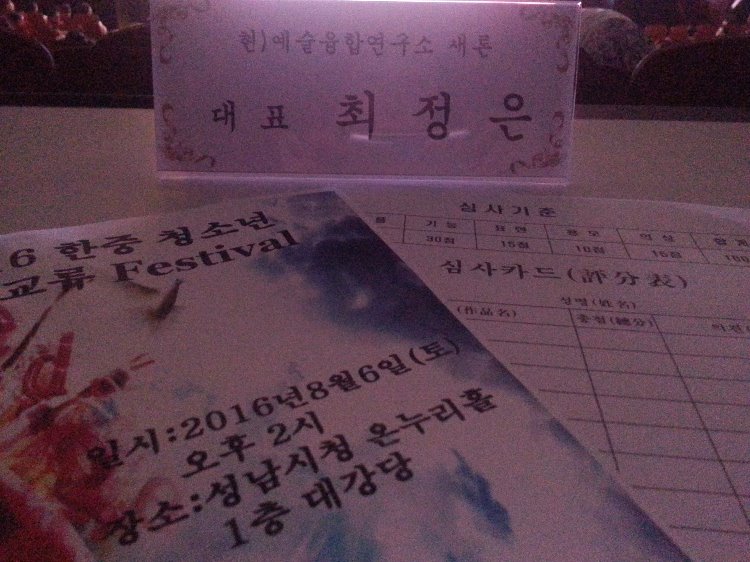 현)예술융합연구소 새론
대표 최정은
6 한중 청소년
교류 Festival
일시:2016년8월6일(토)
오후 2시
장소:성남시청 온누리홀
1층 대강당
심사기준
기능 표현 용모 의상
30점 15점 10점 15점 100
심사카드(評分表)
성명(姓名)
(作品名) 총점(總分)